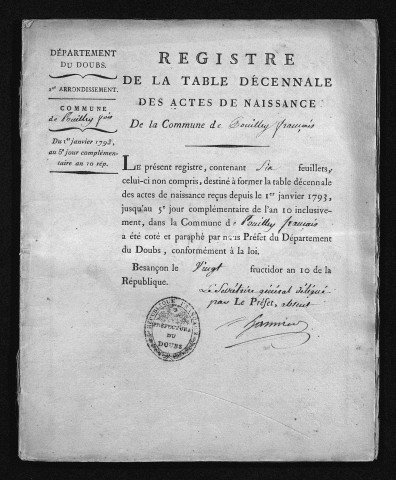 DÉPARTEMENT
DU DOUBS.
1er ARRONDISSEMENT.
COMMUNE
de Pouilley frçois
Du 1er janvier 1793,
au 5e jour complémen-
taire an 10 rép.
REGISTRE
DE LA TABLE DÉCENNALE
DES ACTES DE NAISSANCE
De la Commune de Pouilley français
LE présent registre, contenant Six feuillets,
celui-ci non compris, destiné à former la table décennale
des actes de naissance reçus depuis le 1er janvier 1793,
jusqu'au 5e jour complémentaire de l'an 10 inclusive-
ment, dans la Commune de Pouilley français
a été coté et paraphé par nous Préfet du Département
du Doubs, conformément à la loi.
Besançon le Vingt fructidor an 10 de la
République.
Le Secrétaire général délégué
par Le Préfet, absent
RÉPUBLIQUE FRANÇAISE
PRÉFECTURE
DU
DOUBS